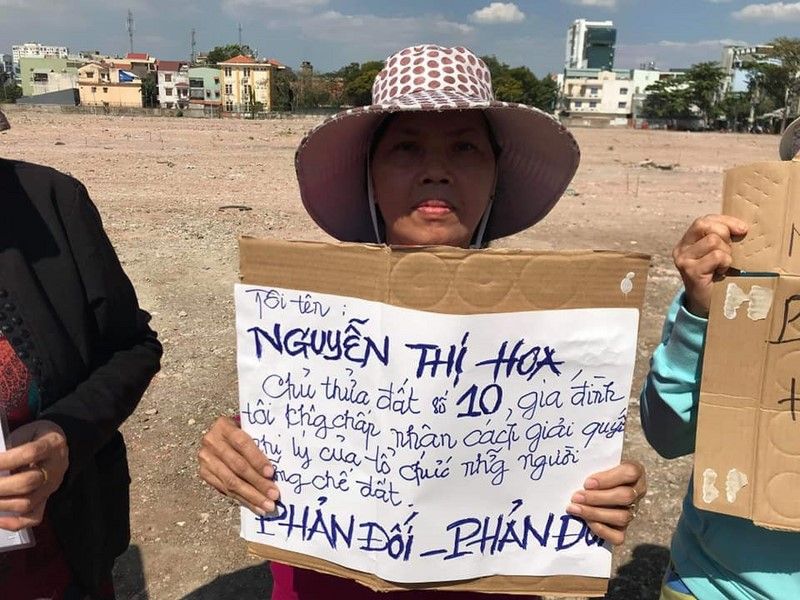 Tôi tên :
NGUYỄN THỊ HOA
Chủ thửa đất số 10 gia đình
tôi không chấp nhân cách giải quyết
phi lý của tổ chức những người
chế đất.
PHẢN ĐỐI _ PHẢN ĐỐI